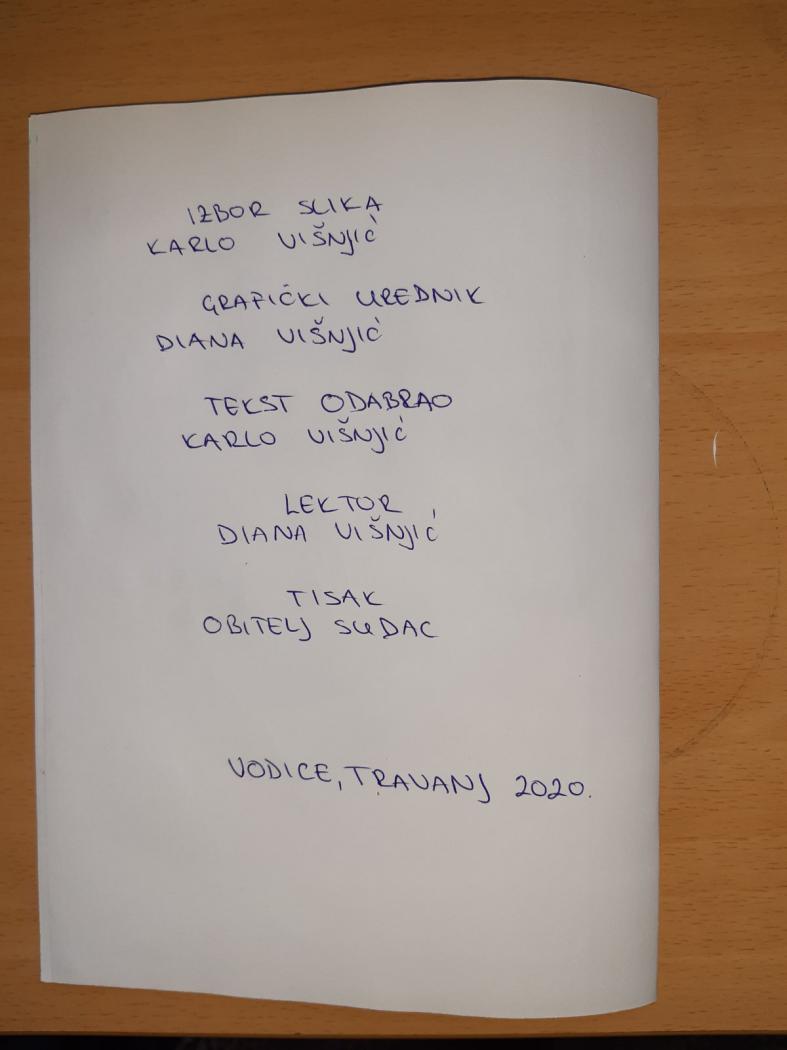 IZBOR SLIKA
KARLO VIŠNJIĆ
GRAFIČKI UREDNIK
DIANA VIŠNJIĆ
TEKST ODABRAO
KARLO VIŠNJIĆ
LEKTOR
DIANA VIŠNJIĆ
TISAK
OBITELJ SUDAC
VODICE, TRAVANJ 2020.